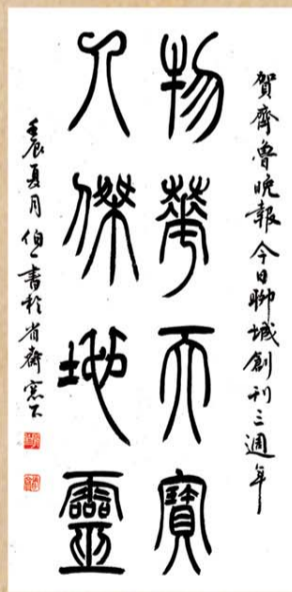 賀齊魯晚報今日聊城創刊三週年
物華天寶
人傑地靈
壬辰夏月伯一書於省齋窓下